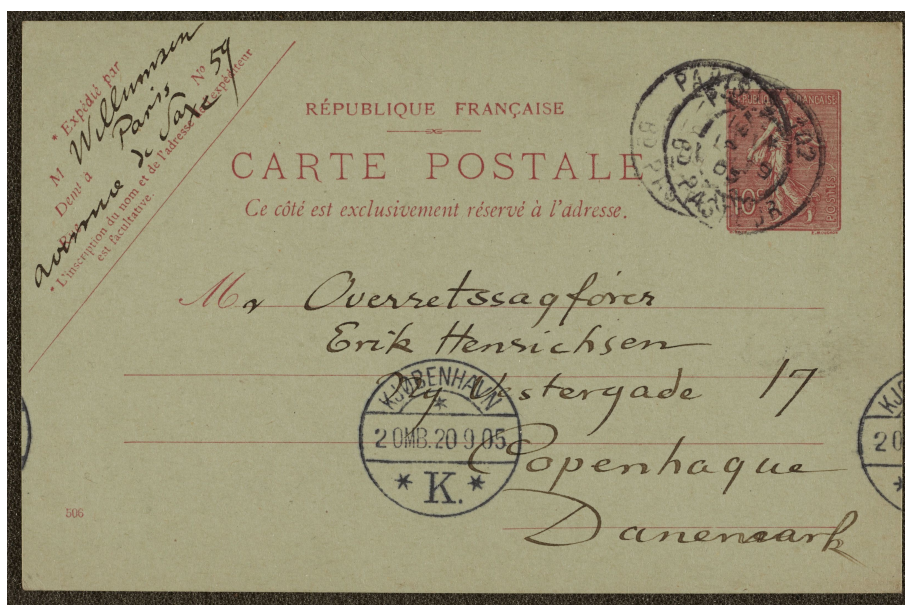 * Expédié par
M Willumsen
Demt à Paris
Rue avenue de Saxe Nº 59
* L'inscription du nom et de l'adresse de l'expéditeur
est facultative.
RÉPUBLIQUE FRANÇAISE
CARTE POSTALE
Ce côté est exclusivement réservé à l'adresse.
PARIS
RÉPUBLIQUE FRANÇAISE
10
POSTES
Mr Overretssagfører
Erik Henrichsen
Ny Vestergade 17
Copenhague
Danemark
KJØBENHAVN
2 OMB. 20 9 05
K.
KJ
2 0
506